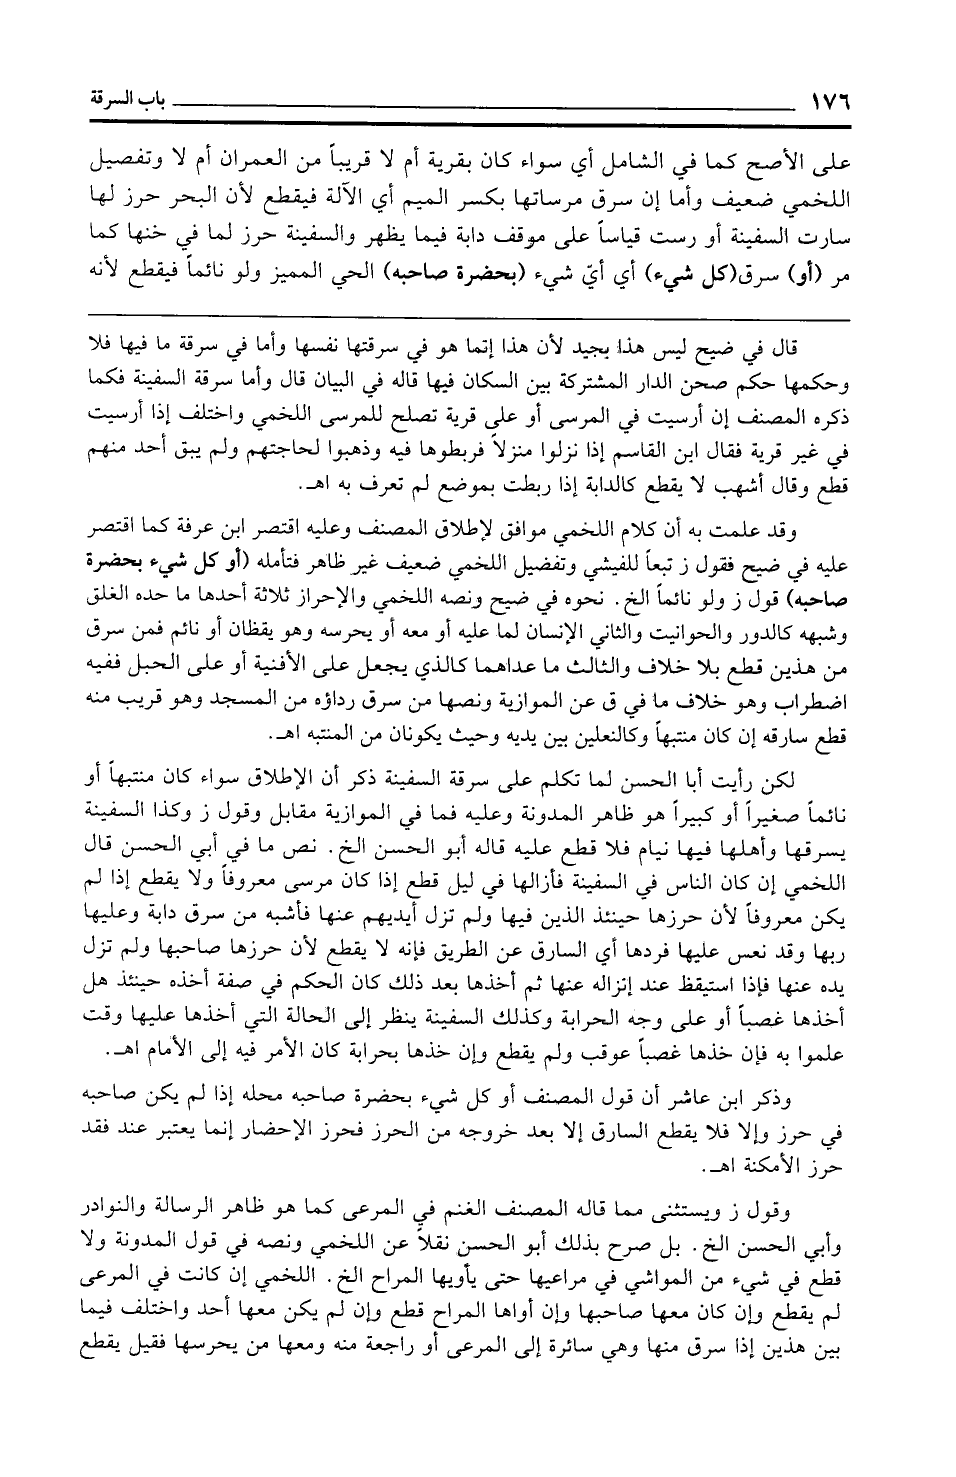 ١٧٦ باب السرقة
على الأصح كما في الشامل أي سواء كان بقرية أم لا قريباً من العمران أم لا وتفصيل
اللخمي ضعيف وأما إن سرق مرساتها بكسر الميم أي الآلة فيقطع لأن البحر حرز لها
سارت السفينة أو رست قياساً على موقف دابة فيما يظهر والسفينة حرز لما في خنها كما
مر (أو) سرق(كل شيء) أي أيّ شيء (بحضرة صاحبه) الحي المميز ولو نائماً فيقطع لأنه
قال في ضيح ليس هذا بجيد لأن هذا إنما هو في سرقتها نفسها وأما في سرقة ما فيها فلا
وحكمها حكم صحن الدار المشتركة بين السكان فيها قاله في البيان قال وأما سرقة السفينة فكما
ذكره المصنف إن أرسيت في المرسى أو على قرية تصلح للمرسى اللخمي واختلف إذا أرسيت
في غير قرية فقال ابن القاسم إذا نزلوا منزلاً فربطوها فيه وذهبوا لحاجتهم ولم يبق أحد منهم
قطع وقال أشهب لا يقطع كالدابة إذا ربطت بموضع لم تعرف به اهـ.
وقد علمت به أن كلام اللخمي موافق لإطلاق المصنف وعليه اقتصر ابن عرفة كما اقتصر
عليه في ضيح فقول ز تبعاً للفيشي وتفضيل اللخمي ضعيف غير ظاهر فتأمله (أو كل شيء بحضرة
صاحبه) قول ز ولو نائماً الخ. نحوه في ضيح ونصه اللخمي والإحراز ثلاثة أحدها ما حده الغلق
وشبهه كالدور والحوانيت والثاني الإنسان لما عليه أو معه أو يحرسه وهو يقظان أو نائم فمن سرق
من هذين قطع بلا خلاف والثالث ما عداهما كالذي يجعل على الأفنية أو على الحبل ففيه
اضطراب وهو خلاف ما في ق عن الموازية ونصها من سرق رداؤه من المسجد وهو قريب منه
قطع سارقه إن كان منتبهاً وكالنعلين بين يديه وحيث يكونان من المنتبه اهـ.
لكن رأيت أبا الحسن لما تكلم على سرقة السفينة ذكر أن الإطلاق سواء كان منتبهاً أو
نائماً صغيراً أو كبيراً هو ظاهر المدونة وعليه فما في الموازية مقابل وقول ز وكذا السفينة
يسرقها وأهلها فيها نيام فلا قطع عليه قاله أبو الحسن الخ. نص ما في أبي الحسن قال
اللخمي إن كان الناس في السفينة فأزالها في ليل قطع إذا كان مرسى معروفاً ولا يقطع إذا لم
يكن معروفاً لأن حرزها حينئذ الذين فيها ولم تزل أيديهم عنها فأشبه من سرق دابة وعليها
ربها وقد نعس عليها فردها أي السارق عن الطريق فإنه لا يقطع لأن حرزها صاحبها ولم تزل
يده عنها فإذا استيقظ عند إنزاله عنها ثم أخذها بعد ذلك كان الحكم في صفة أخذه حينئذ هل
أخذها غصباً أو على وجه الحرابة وكذلك السفينة ينظر إلى الحالة التي أخذها عليها وقت
علموا به فإن خذها غصباً عوقب ولم يقطع وإن خذها بحرابة كان الأمر فيه إلى الأمام اهـ.
وذكر ابن عاشر أن قول المصنف أو كل شيء بحضرة صاحبه محله إذا لم يكن صاحبه
في حرز وإلا فلا يقطع السارق إلا بعد خروجه من الحرز فحرز الإحضار إنما يعتبر عند فقد
حرز الأمكنة اهـ.
وقول ز ويستثنى مما قاله المصنف الغنم في المرعى كما هو ظاهر الرسالة والنوادر
وأبي الحسن الخ. بل صرح بذلك أبو الحسن نقلاً عن اللخمي ونصه في قول المدونة ولا
قطع في شيء من المواشي في مراعيها حتى يأويها المراح الخ. اللخمي إن كانت في المرعى
لم يقطع وإن كان معها صاحبها وإن أواها المراح قطع وإن لم يكن معها أحد واختلف فيما
بين هذين إذا سرق منها وهي سائرة إلى المرعى أو راجعة منه ومعها من يحرسها فقيل يقطع